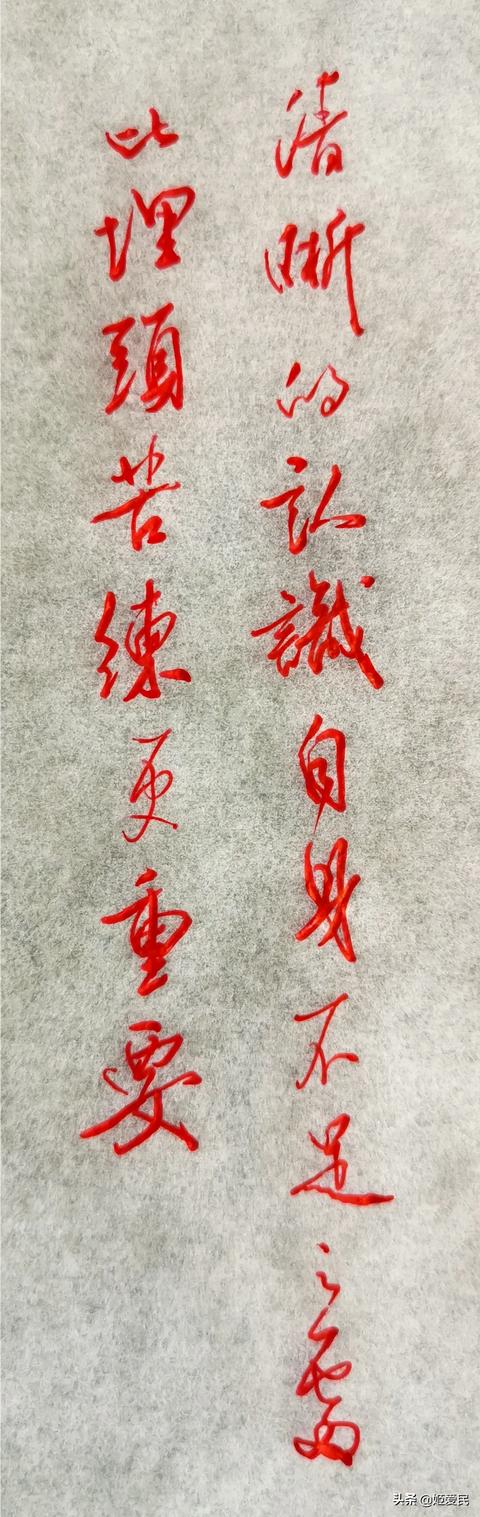 清晰的认識自身不足之處
比埋頭苦練更重要
头条 @姬爱民